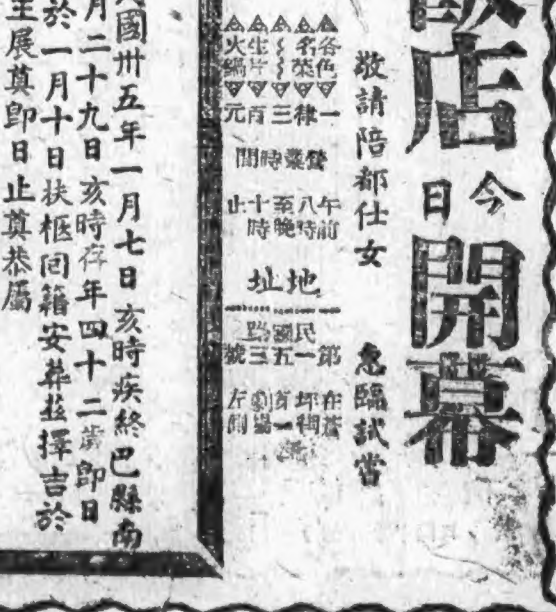 飯店
今日
開幕
敬請陪都仕女 惠臨試嘗
各色名菜
生片火鍋
一律三百元
營業時間
午前八時至晚十時止
地址
民國路
第一五三號
在蒼坪街
第一劇場左側
國卅五年一月七日亥時疾終巴縣南
月二十九日亥時存年四十二歲即日
於一月十日扶柩回籍安葬茲擇吉於
展奠即日止奠恭屬